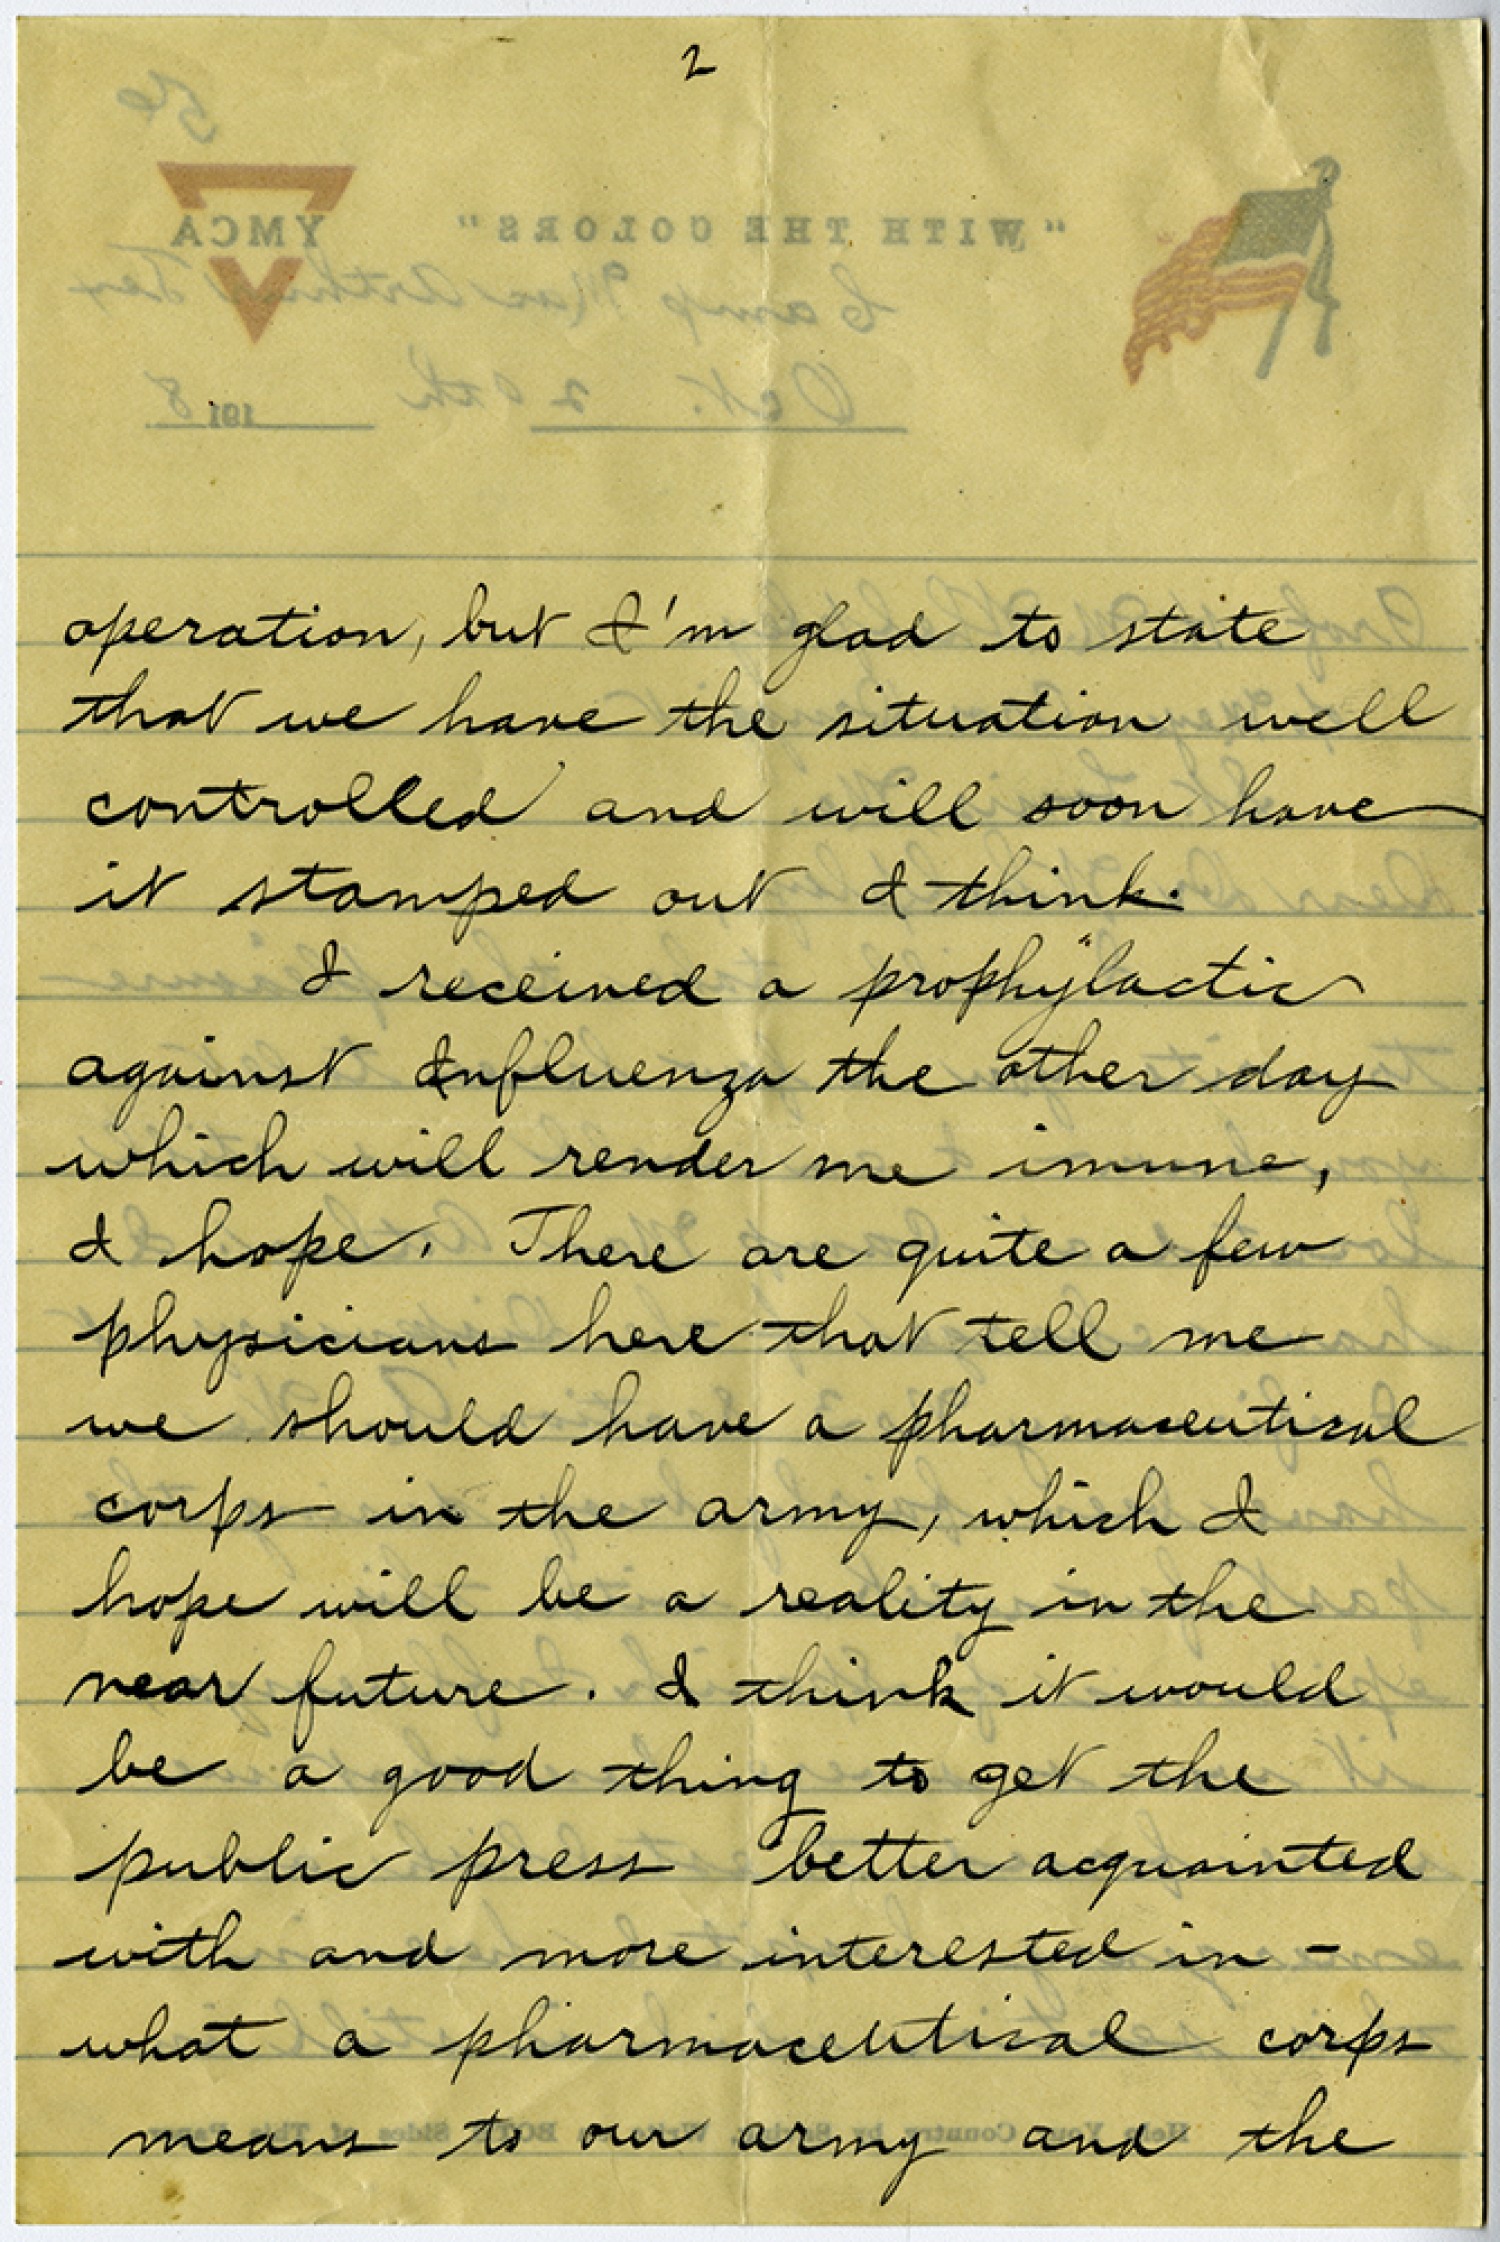 2
56
YMCA
"WITH THE COLORS"
Camp MacArthur Tex
Oct. 20th 1918
operation, but I'm glad to state
that we have the situation well
controlled and will soon have
it stamped out I think.
I received a prophylactic
against Influenza the other day
which will render me imune,
I hope. There are quite a few
physicians here that tell me
we should have a pharmaceutical
corps in the army, which I
hope will be a reality in the
near future. I think it would
be a good thing to get the
public press better acquainted
with and more interested in -
what a pharmaceutical corps
means to our army and the